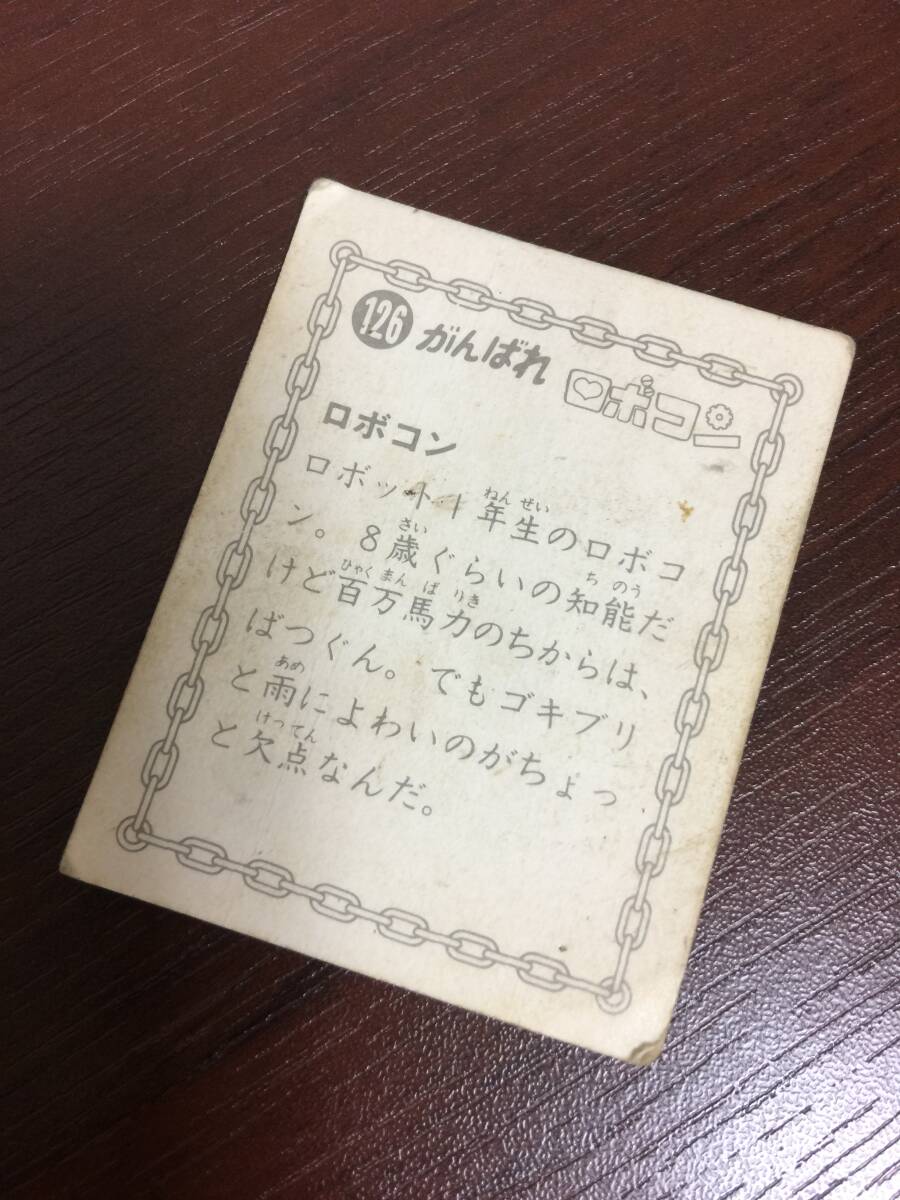 126 がんばれ ロボコン
ロボコン
ロボット1年生のロボコ
ン。8歳ぐらいの知能だ
けど百万馬力のちからは、
ばつぐん。でもゴキブリ
と雨によわいのがちょっ
と欠点なんだ。